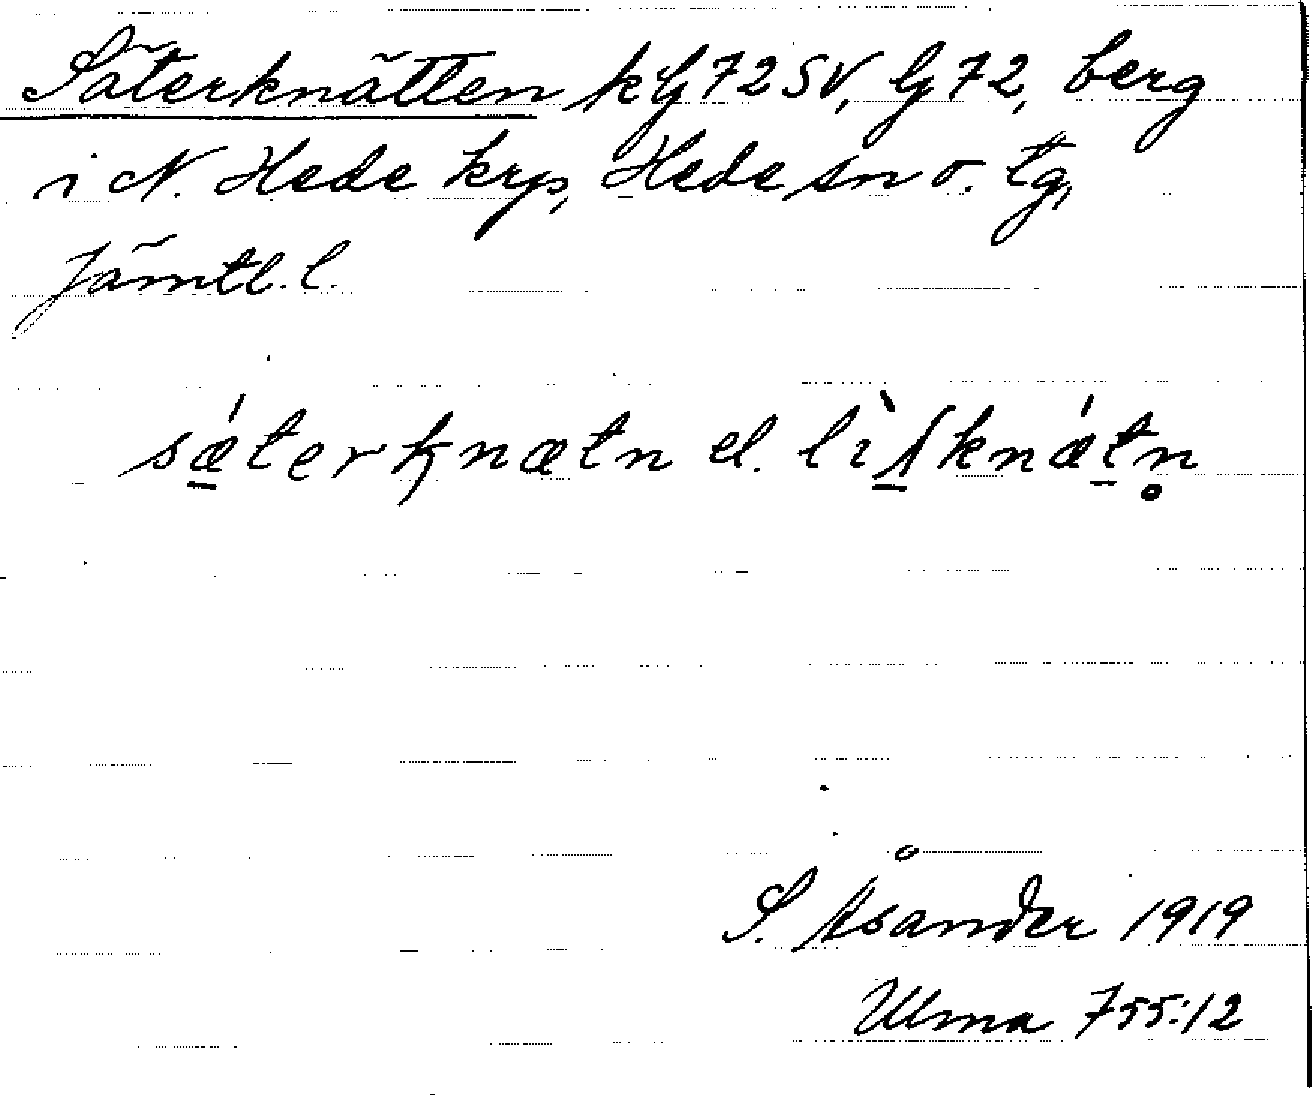 Säterknätten kbl 72 SV, bl 72, berg
i N. Hede krp, Hede sn o. tg,
Jämtl. l.
sǽterknætn el. lìſknǽtn̥
S. Åsander 1919
Ulma 755:12